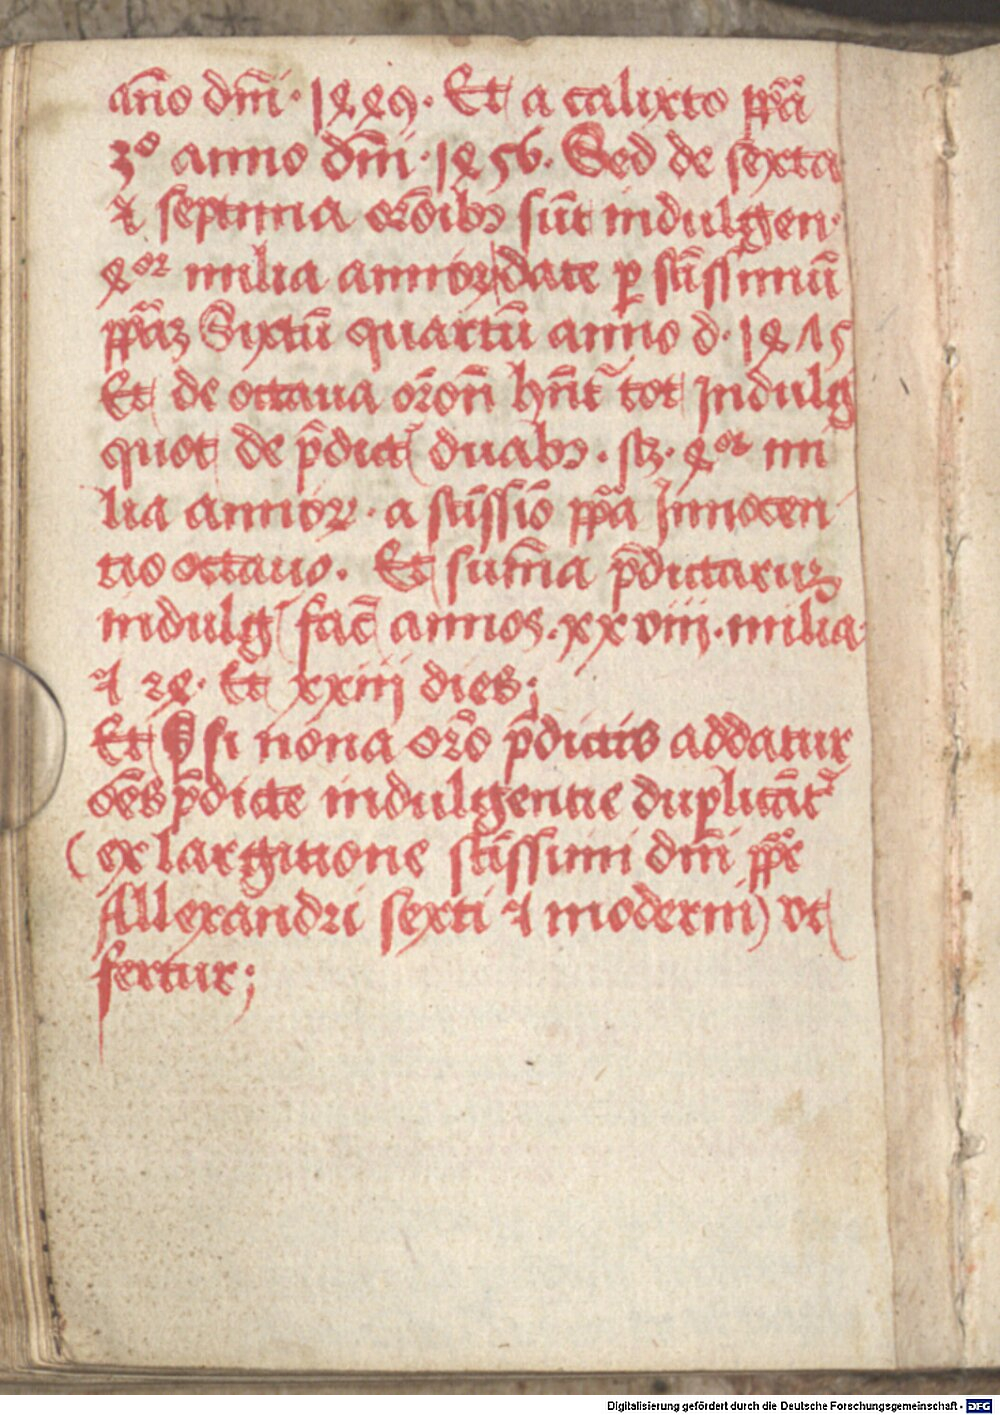 año dm̄i · 1449 · Et a calixto pp̄a
3º anno dm̄i · 1456 · Sed de sexta
⁊ septima or̄oib⁹ sūt indulgen·
4or milia annorꝝ date ꝑ sc̄issimū
pp̄aꝫ Sixtū quartū anno d · 1475
Et de octaua or̄on̄ hn̄t̄ tot Indulg
quot de p̄dict̄ duab⁹ · sꝫ · 4or mi
lia annoꝝ · a sc̄issīo pp̄a Innocen
tio octauo . Et sum̄a p̄dictaruꝫ
indulg fac̄ annos . xxviii . milia
⁊ 24 . Et xxiii dies ;
Et si nona or̄o p̄dictis addatur
oēs p̄dicte indulgentie duplicāt̄
( ex largitione sc̄issimi dm̄i pp̄e
Allexandri sexti ⁊ moderni ) vt
fertur ;
Digitalisierung gefördert durch die Deutsche Forschungsgemeinschaft - DFG